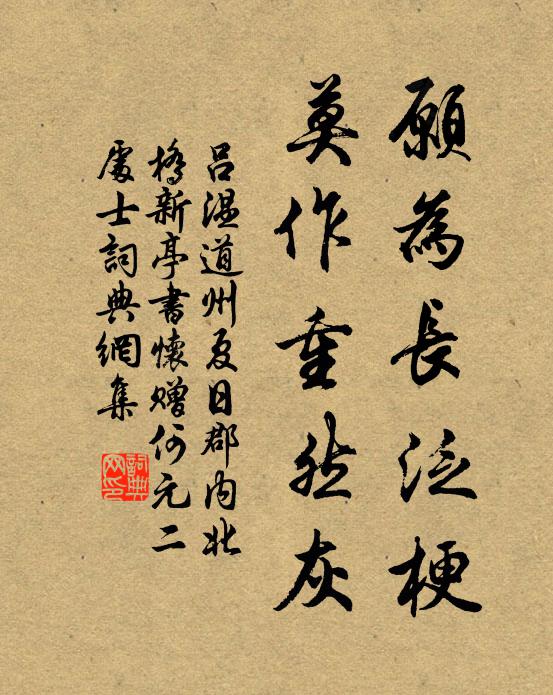 願為長泛梗
莫作重然灰
呂溫道州夏日郡內北
橋新亭書懷贈何元二
處士詞典網集
詞典
网印